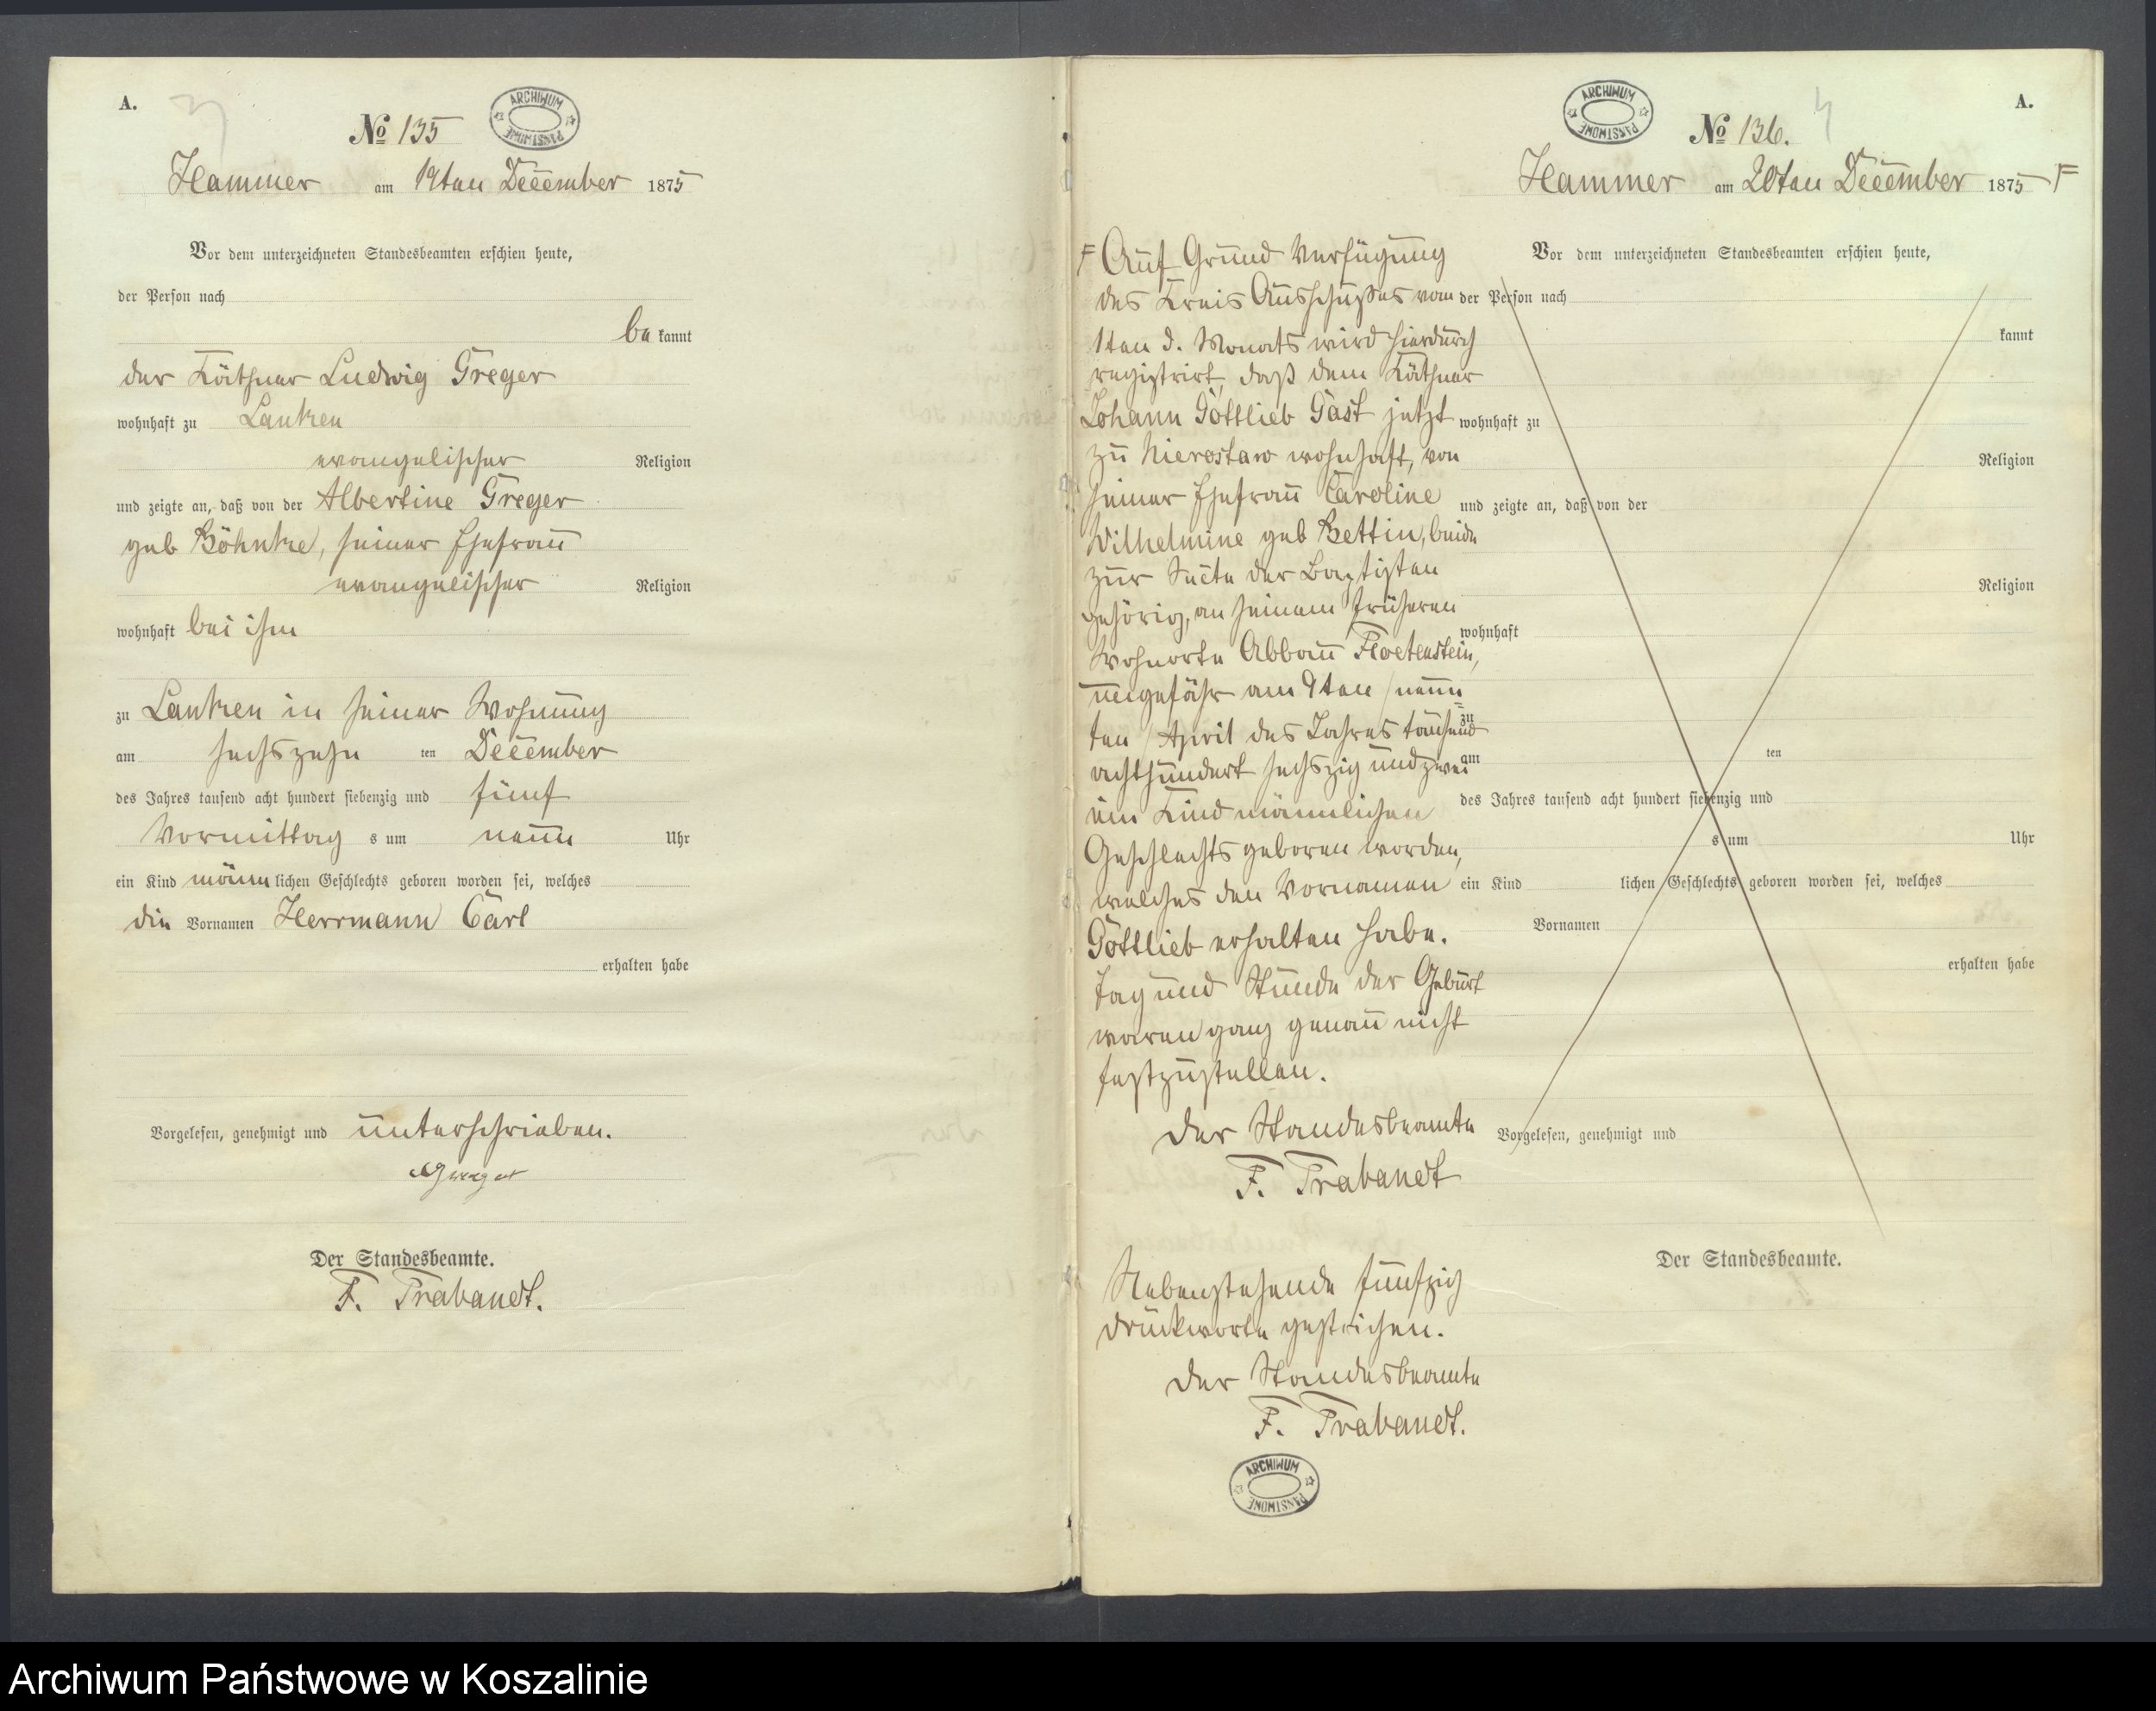 A.
No 135
ARCHIWUM PAŃSTWOWE
Hammer am 19ten December 1875
Vor dem unterzeichneten Standesbeamten erschien heute,
der Person nach
be kannt
der Käthner Ludwig Greger
wohnhaft zu Lanken
evangelischer Religion
und zeigte an, daß von der Albertine Greger
geb Böhnke, seiner Ehefrau
evangelischer Religion
wohnhaft bei ihm
zu Lanken in seiner Wohnung
am sechszehn ten December
des Jahres tausend acht hundert siebenzig und fünf
Vormittag s um neun Uhr
ein Kind männlichen Geschlechts geboren worden sei, welches
die Vornamen Herrmann Carl
erhalten habe
Vorgelesen, genehmigt und unterschrieben.
Greger
Der Standesbeamte.
F. Trabandt.
A.
ARCHIWUM PAŃSTWOWE
No 136.
Hammer am 20ten December 1875 F
F Auf Grund Verfügung
des Kreis Ausschußes vom
1ten d. Monats wird hierdurch
registrirt, daß dem Käthner
Johann Gottlieb Gast jetzt
zu Nierostaw wohnhaft, von
seiner Ehefrau Caroline
Wilhelmine geb Bettin, beide
zur Secte der Baptisten
gehörig, an seinem früheren
Wohnorte Abbau Floetenstein,
ungefähr am 9ten /neun=
ten/ April des Jahres tausend
achthundert sechszig und zwei
ein Kind männlichen
Geschlechts geboren worden,
welches den Vornamen
Gottlieb erhalten habe.
Tag und Stunde der Geburt
waren ganz genau nicht
festzustellen.
Der Standesbeamte
F. Trabandt
Nebenstehende fünfzig
Druckworte gestrichen.
Der Standesbeamte
F. Trabandt.
ARCHIWUM PAŃSTWOWE
Vor dem unterzeichneten Standesbeamten erschien heute,
der Person nach
kannt
wohnhaft zu
Religion
und zeigte an, daß von der
Religion
wohnhaft
zu
am ten
des Jahres tausend acht hundert siebenzig und
s um Uhr
ein Kind lichen Geschlechts geboren worden sei, welches
Vornamen
erhalten habe
Vorgelesen, genehmigt und
Der Standesbeamte.
Archiwum Państwowe w Koszalinie